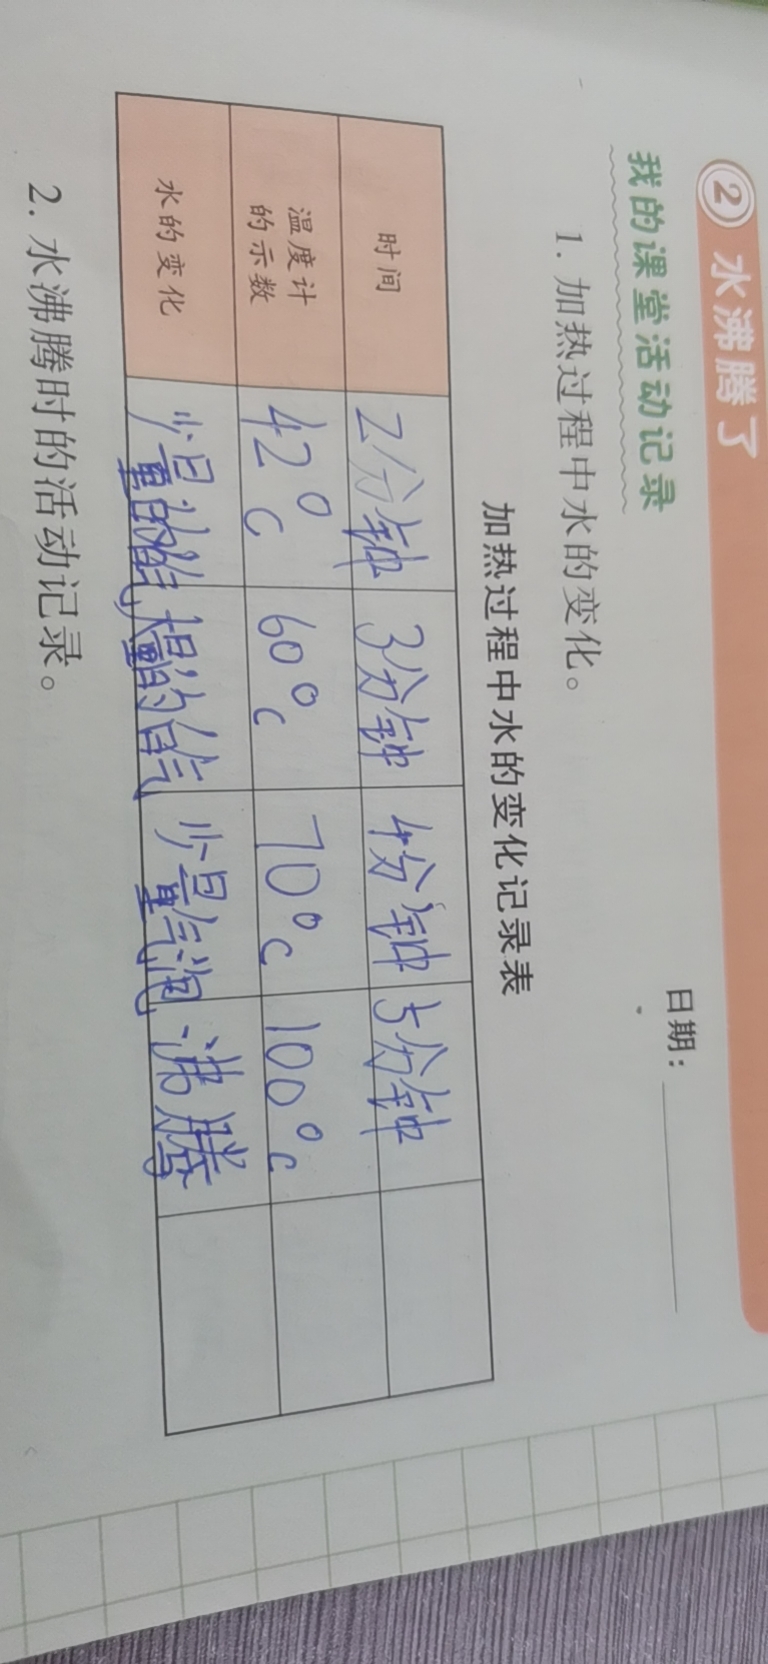 ② 水沸腾了
日期：
我的课堂活动记录
1. 加热过程中水的变化。
加热过程中水的变化记录表
时间 2分钟 3分钟 4分钟 5分钟
温度计的示数 42°C 60°C 70°C 100°C
水的变化 少量的白气 大量的白气 少量气泡 沸腾
2. 水沸腾时的活动记录。